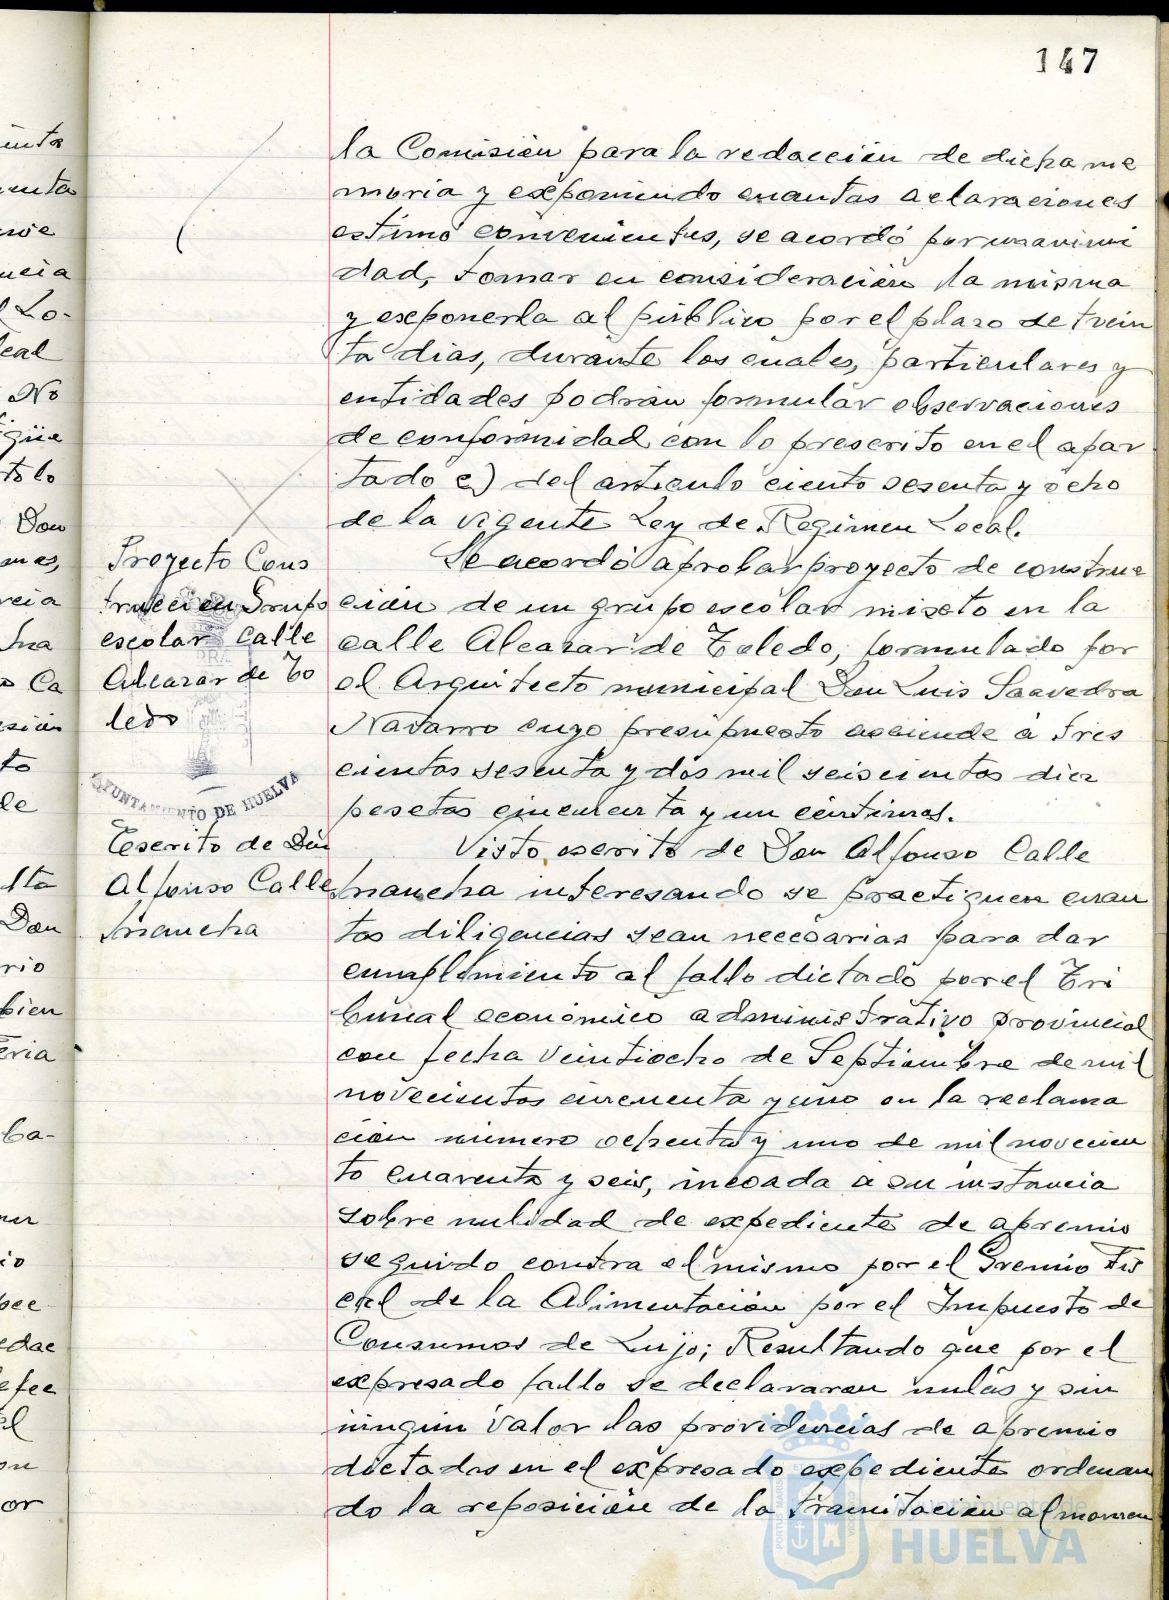 147
la Comisión para la redacción de dicha me
moria y exponiendo cuantas aclaraciones
estimó convenientes, se acordó por unanimi
dad, tomar en consideración la misma
y exponerla al público por el plazo de trein
ta dias, durante los cuales, particulares y
entidades podrán formular observaciones
de conformidad con lo prescrito en el apar
tado c) del artículo ciento sesenta y ocho
de la vigente Ley de Regimen Local.
Proyecto Cons
trucción Grupo
escolar calle
Alcazar de To
ledo
Se acordó aprobar proyecto de construc
ción de un grupo escolar mixto en la
calle Alcazar de Toledo, formulado por
el Arquitecto municipal Don Luis Saavedra
Navarro cuyo presupuesto asciende a tres
cientas sesenta y dos mil seiscientas diez
pesetas cincuenta y un céntimos.
AYUNTAMIENTO DE HUELVA
Escrito de Don
Alfonso Calle
Mancha
Visto escrito de Don Alfonso Calle
Mancha interesando se practiquen cuan
tas diligencias sean necesarias para dar
cumplimiento al fallo dictado por el Tri
bunal económico administrativo provincial
con fecha veintiocho de Septiembre de mil
novecientos cincuenta y uno en la reclama
ción número ochenta y uno de mil novecien
to cuarenta y seis, incoada a su instancia
sobre nulidad de expediente de apremio
seguido contra el mismo por el Gremio Fis
cal de la Alimentación por el Impuesto de
Consumos de Lujo; Resultando que por el
expresado fallo se declararon nulas y sin
ningún valor las providencias de apremio
dictadas en el expresado expediente ordenan
do la reposición de la tramitación al momen
Ayuntamiento de
HUELVA